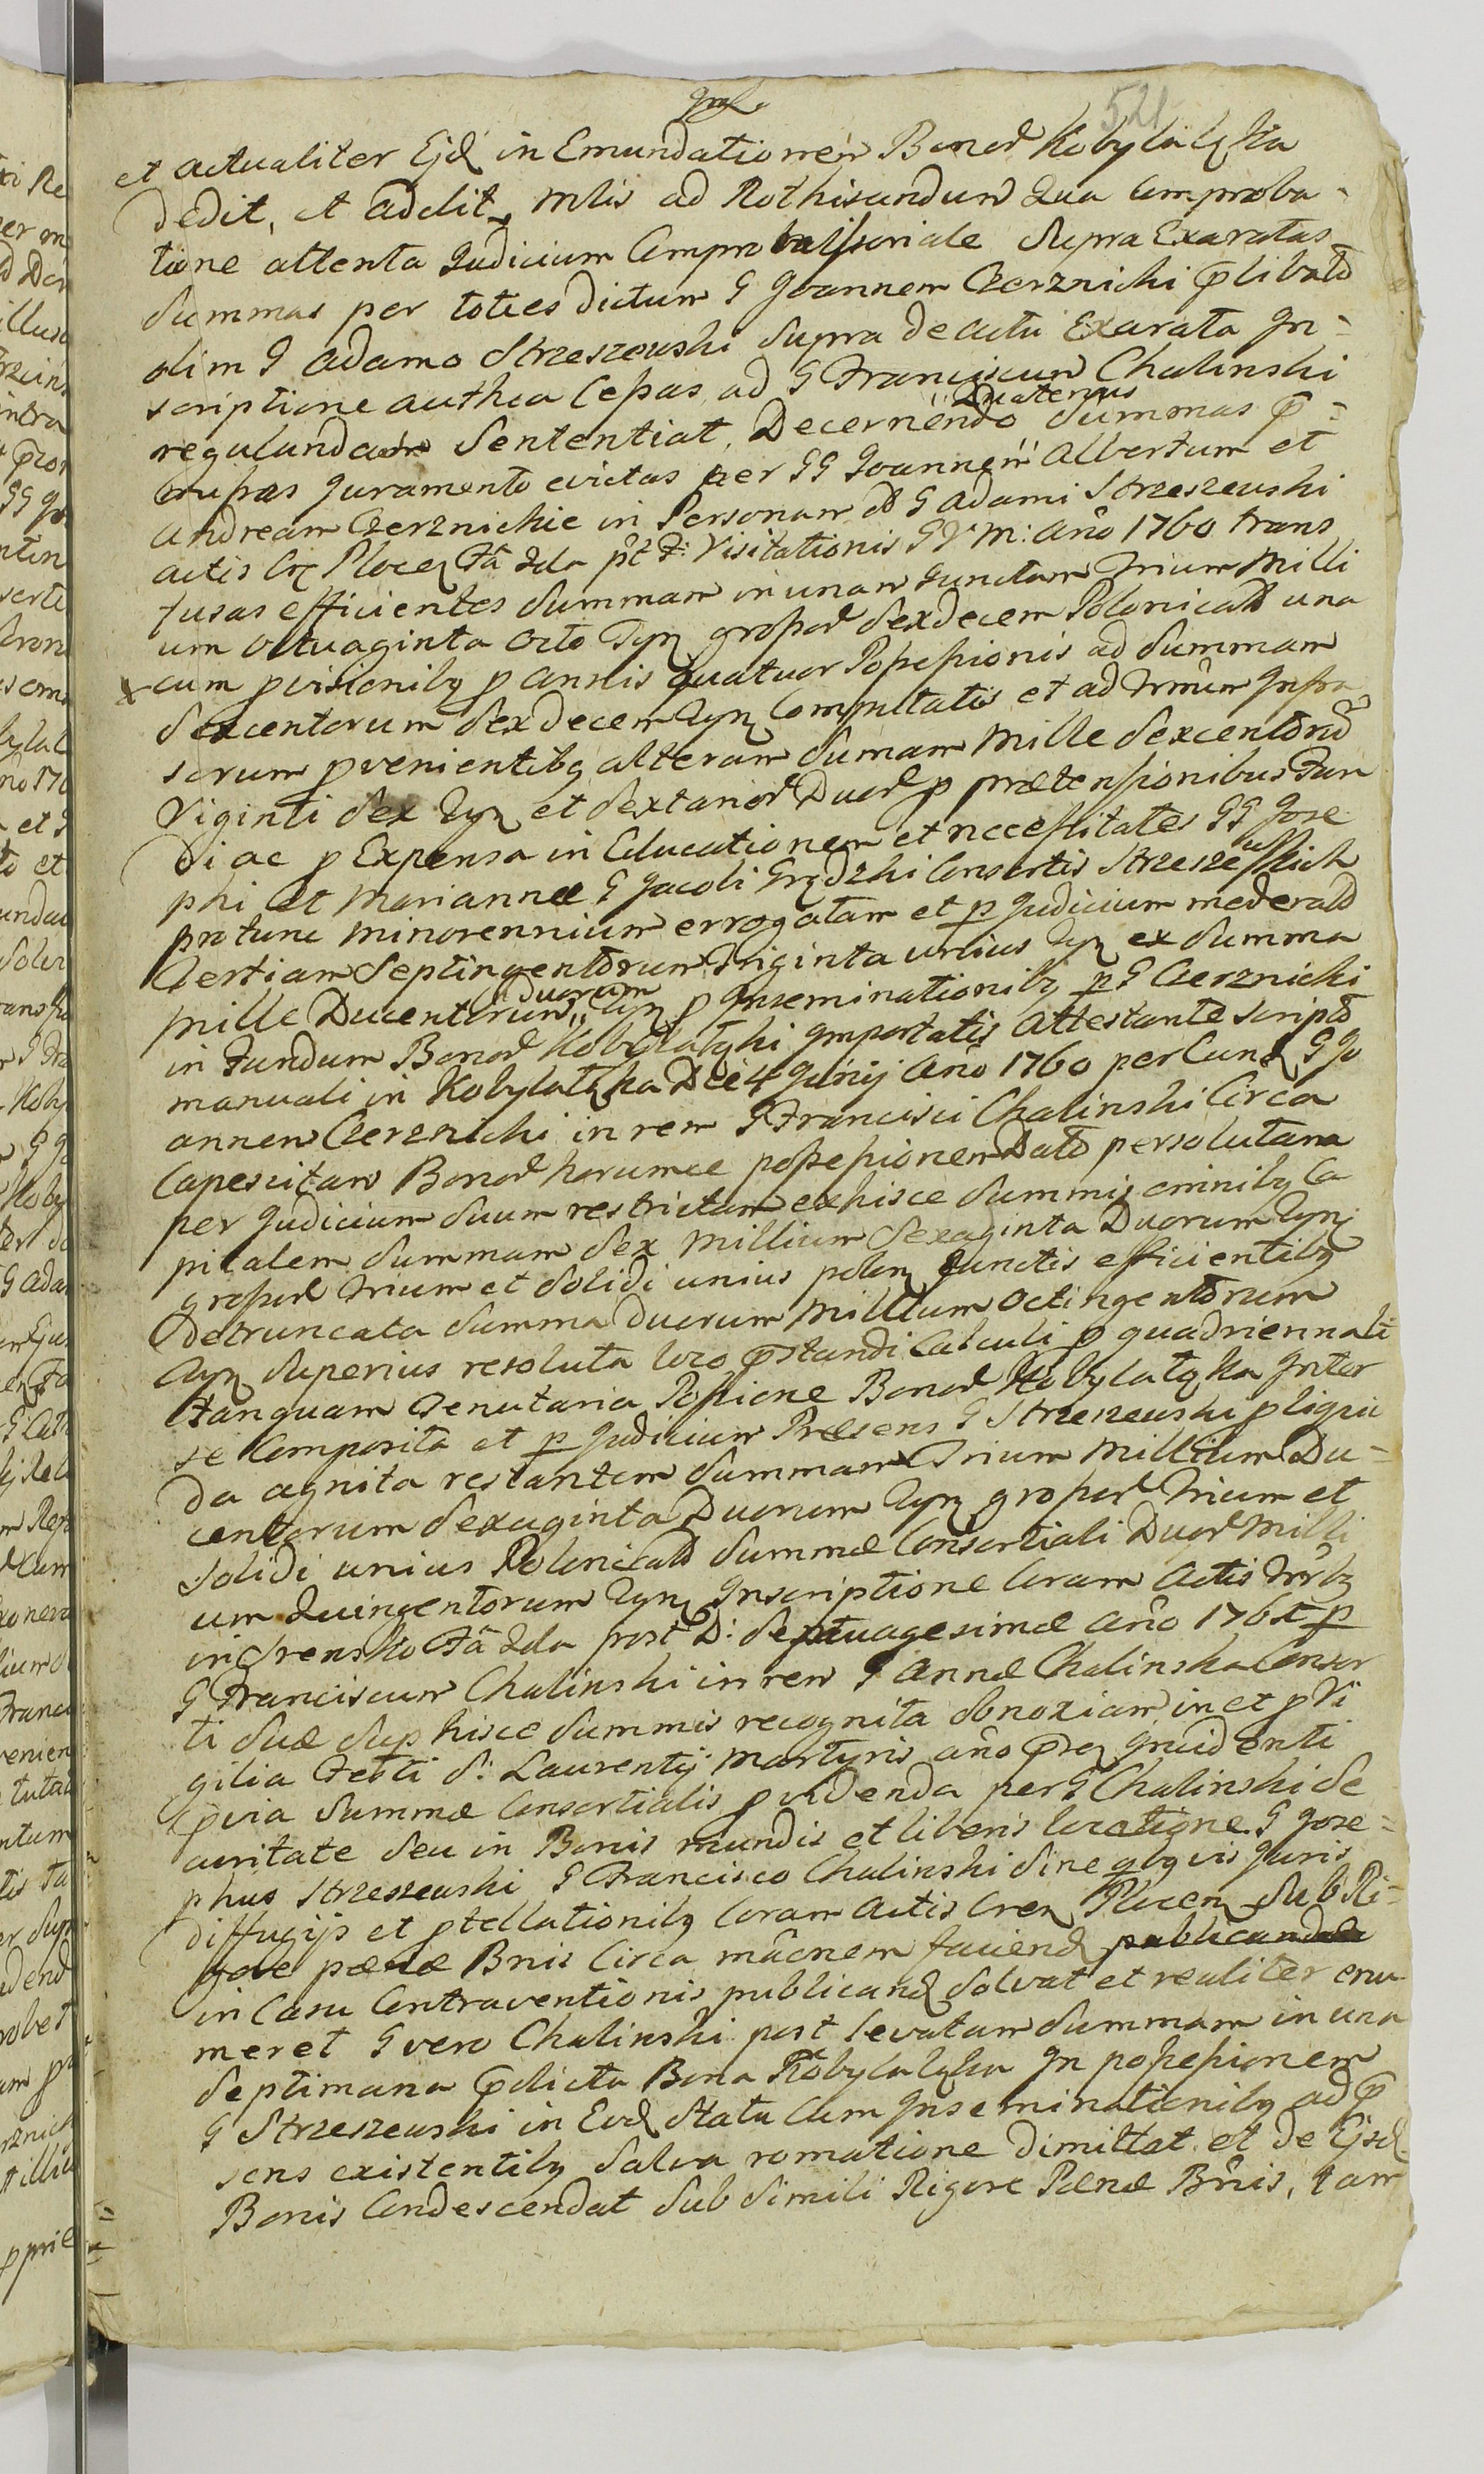 521
et actualiter Ejd in Emundationem Bonor Kobylałęka
dedit, et addit, mtis ad Rothisandum Qua Comproba-
tione attenta Judicium Compromissoriale Supra Exaratas
Summas per toties dictum G Joannem Czerznicki plibato
olim G Adamo Strzeszewski Supra de actu Exarata In-
scriptione authca Cessas ad G Franciscum Chalinski
regulandas Sententiat, Decernendo Quatenus Summas p-
missas Juramento evictas per GG Joannem Albertum et
Andream Czerznickie in Personam G Adami Strzeszewski
actis Płocen Fa 2da pt F: Visitationis Anno 1760 trans
fusas efficientes Summam in unam Junctam Trium Milli
um Octuaginta Octo Tyn grossor Sexdecem Polonical una
cum pvisionibq p Annis Quatuor Possessionis ad Summam
Sexcentorum Sexdecem Tyn Computatis et ad Trnum Infra
scrum pvenientibq alteram Sumam Mille Sexcentorum
Viginti Sex Tyn et Sextarior Duor p prætensionibus Fun
di ac p Expensa in Educationem et necessitates GG Jose
phi et Mariannæ G Jacobi Consortis Strzeszewskich
pro tunc minorennium errogatam et p Judicium moderatd
Tertiam Septingentorum Triginta unius Tyn ex Summa
Mille Ducentorum Duorum Tyn p Inseminationibq p G Czerznicki
in Fundum Bonor Kobylałęki Importatis Attestante scripto
manuali in Kobylałęka Die 4 Junij Anno 1760 per Eund G Jo
annem Czerznicki in rem G Francisci Chalinski Circa
Capescitam Bonor horumce possessionem Dato persolutam
per Judicium Suum restrictam exhisce Summis omnibq Ca
pitalem Summam Sex Millium Sexaginta Duorum Tyn
grossor Trium et Solidi unius polon Junctis efficientibq
Detruncata Summa Duorum Millium Octingentorum
Tyn Superius resoluta loco pstandi Calculi p quadriennali
tanquam Tenutaria Possione Bonor Kobylałęka Inter
se Composita et p Judicium Præsens G Strzeszewski p liqui
da agnita restantem Summam Trium Millium Du-
centorum Sexaginta Duorum Tyn grossor Trium et
Solidi unius Polonical Summæ Consortiali Duor Milli
um Quingentorum Tyn Inscriptione Coram Actis Trrbq
in Srensko Fa 2da post D: Septuagesimæ Anno 1761 p
G Franciscum Chalinski in rem G Annæ Chalinska Consor
ti Suæ Sup hisce Summis recognita obnoxiam in et p Vi
gilia Festi S: Laurentij Martyris anno præ Incidenti
pvia Summæ Consortialis pvidenda per G Chalinski Se
curitate seu in Bonis mundis et liberis locatione G Jose-
phus Strzeszewski G Francisco Chalinski Sine qbqvis Juris
diffugijs et ptellationibq Coram Actis Cren Plocen Sub Ri-
gore pœnæ Bnis Circa mâonem faciend publicandæ
in Casu Contraventionis publicand Solvat et realiter enu
meret G vero Chalinski post levatam Summam in una
Septimana pdicta Bona Kobylałęka In possessionem
G Strzeszewski in Eod Statu Cum Inseminationibq ad p
sens existentibq Salva romatione dimittat et de Ijsd
Bonis Condescendat Sub Simili Rigore Pœnæ Bnis, tam